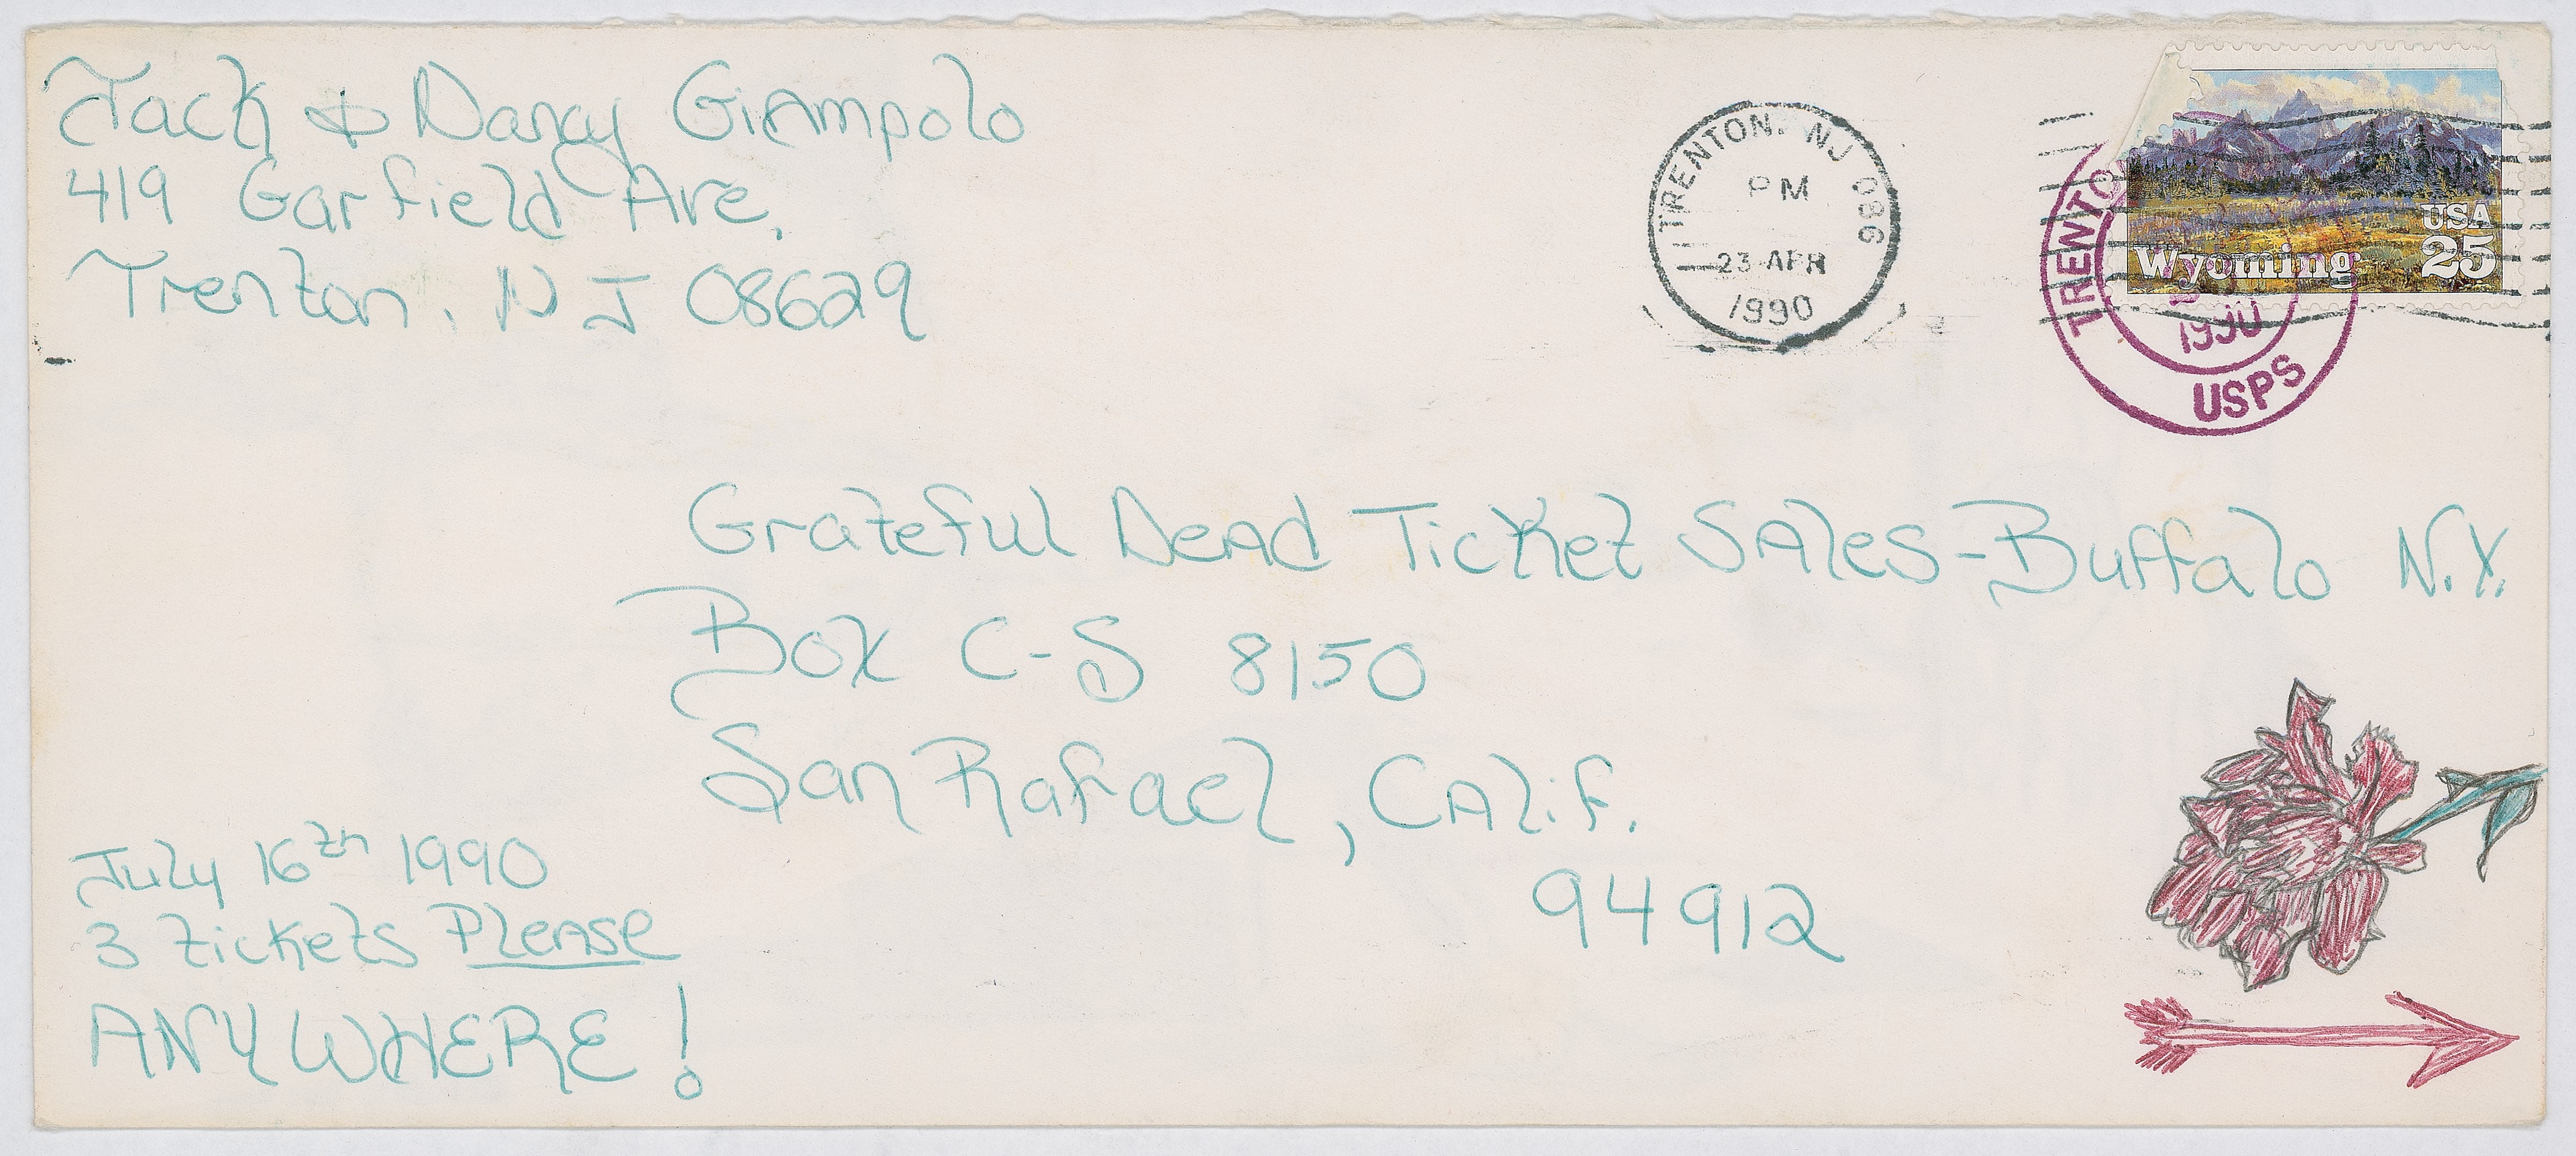 Jack & Darcy Giampolo
419 Garfield Ave,
Trenton, NJ 08629
TRENTON, NJ 086
PM
23 APR
1990
USA
25
Wyoming
TRENTO
1990
USPS
Grateful Dead Ticket Sales-Buffalo N.Y.
Box C-S 8150
San Rafael, Calif.
94912
July 16th 1990
3 tickets Please
ANYWHERE!